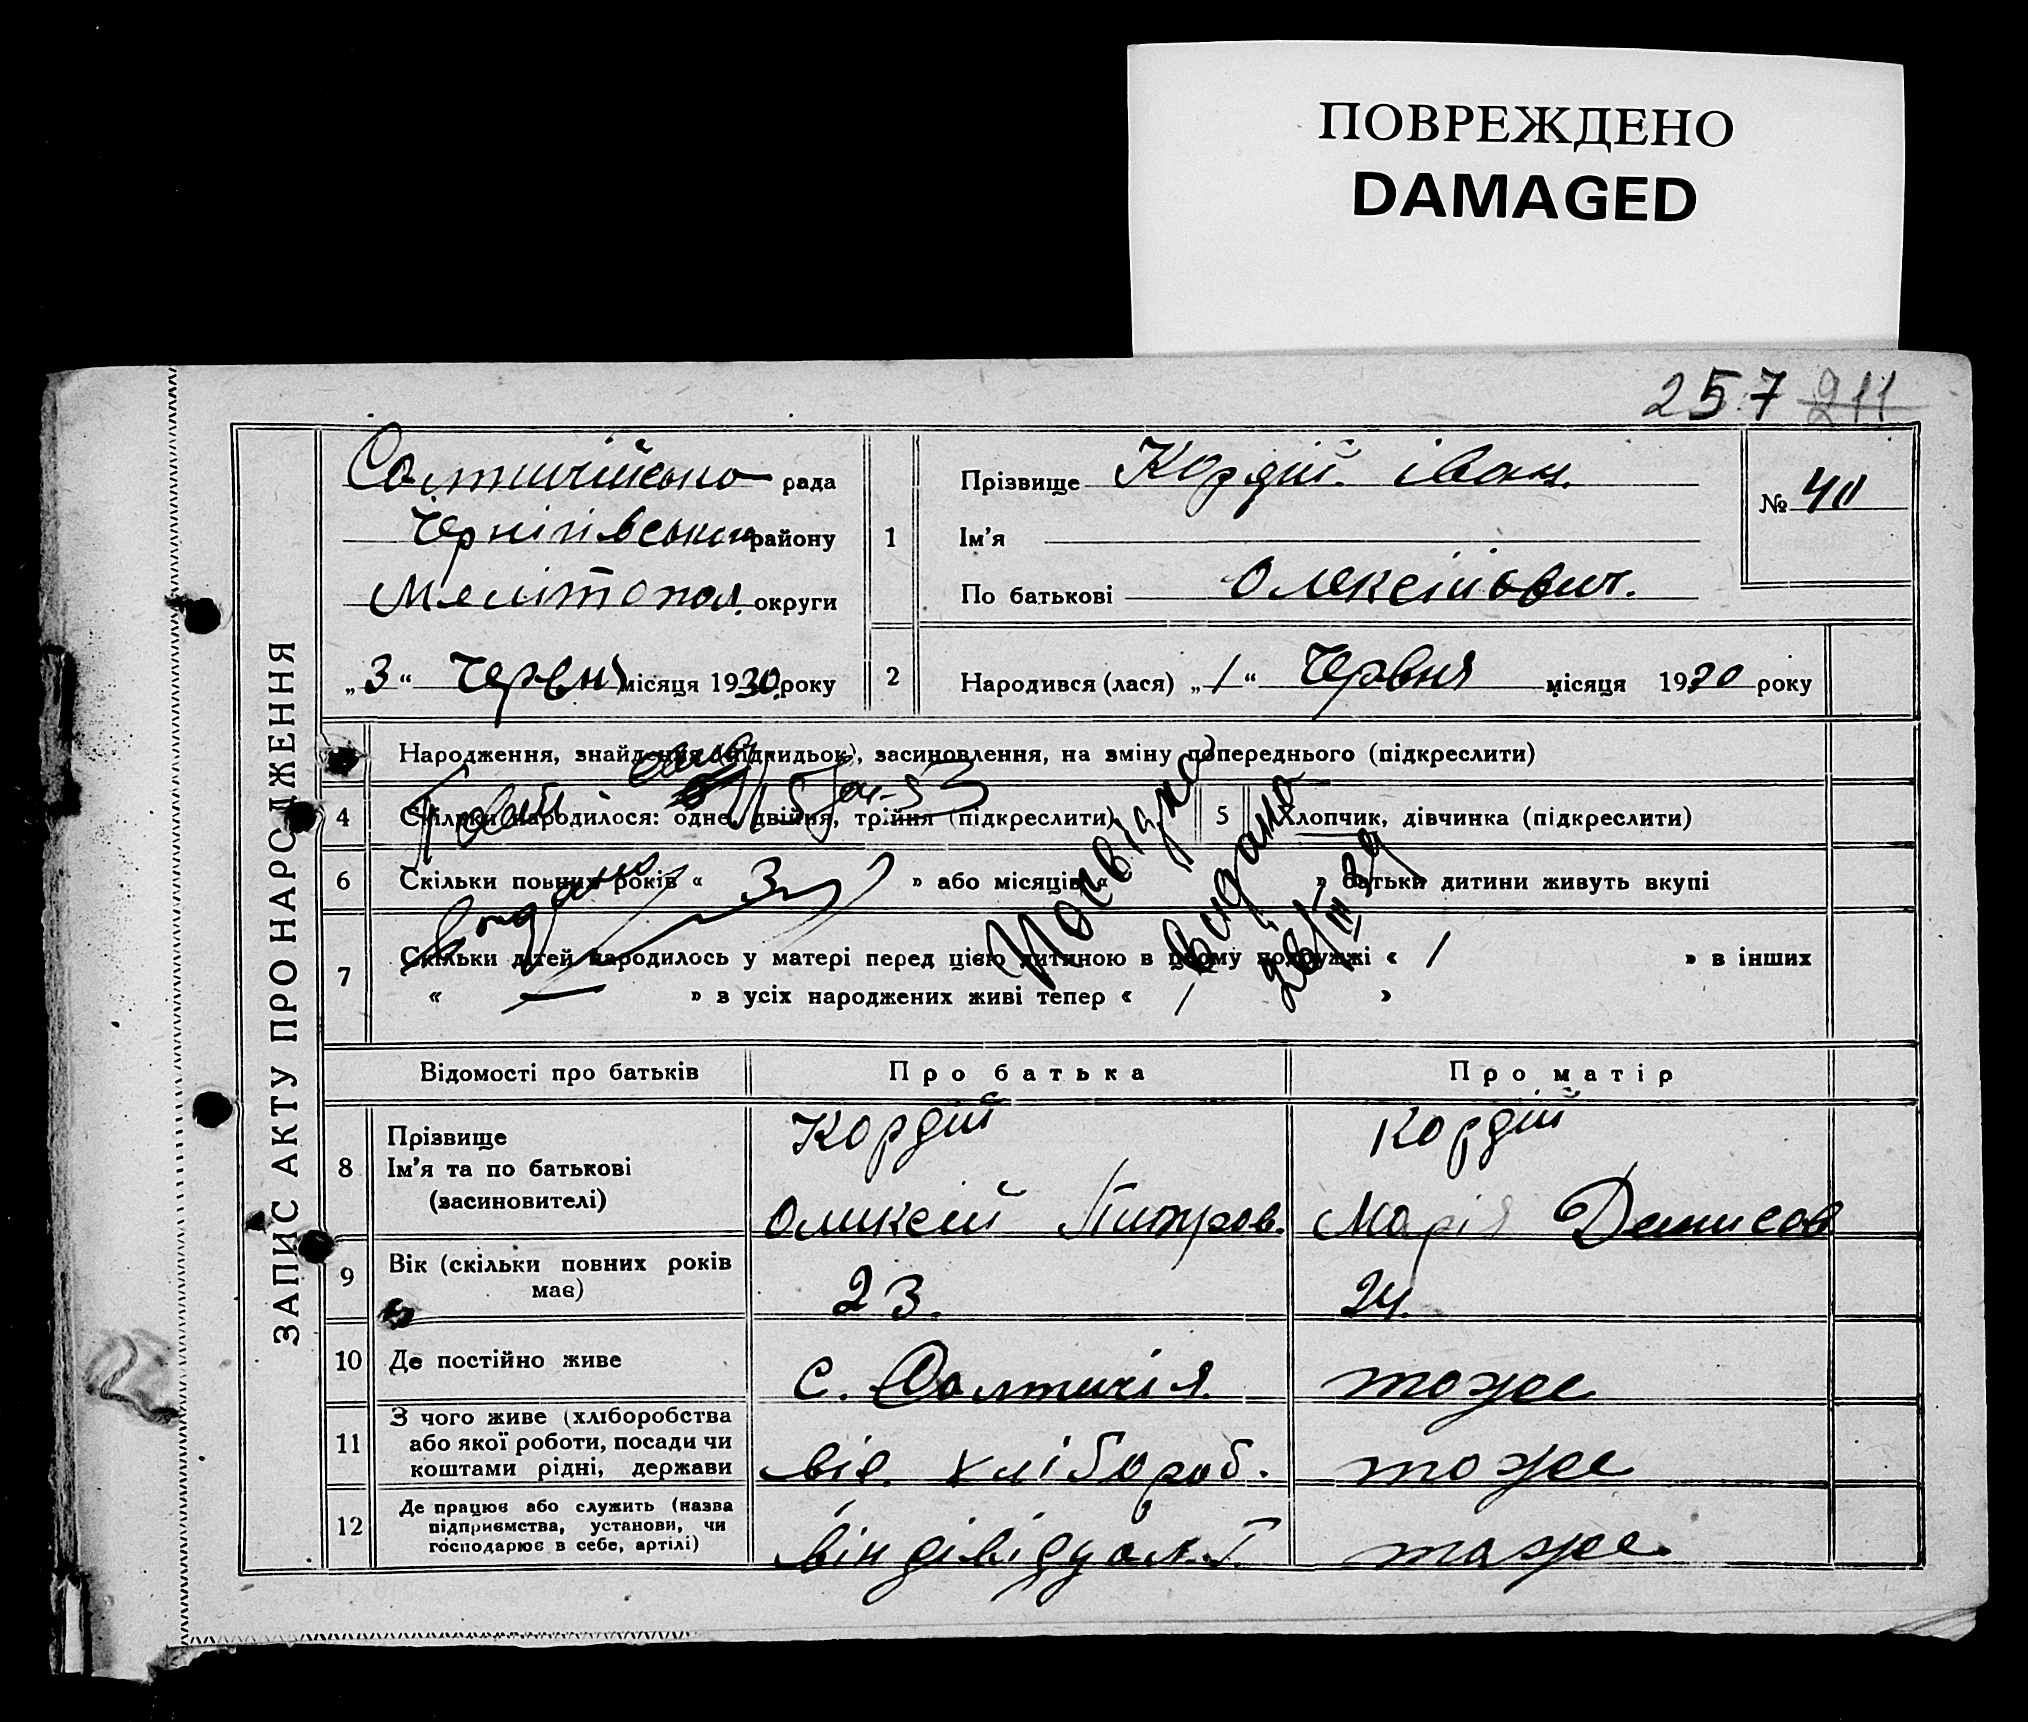 ПОВРЕЖДЕНО
DAMAGED
257 211
ЗАПИС АКТУ ПРО НАРОДЖЕННЯ
Солтичійсько рада
Чернігівськ району
Мелітопол. округи
„3“ Червня місяця 1930 року
1
Прізвище Кордій. іван.
Ім'я
По батькові Олексійович.
№ 40
2
Народився (лася) „1“ Червня місяця 1930 року
Народження, знайдення (підкидьок), засиновлення, на зміну попереднього (підкреслити)
4
Скільки народилося: одне, двійня, трійня (підкреслити)
5
Хлопчик, дівчинка (підкреслити)
6
Скільки повних років « 3 » або місяців « » батьки дитини живуть вкупі
7
Скільки дітей народилось у матері перед цією дитиною в цьому подружжі « 1 » в інших
« — » з усіх народжених живі тепер « 1 »
видано
Відомості про батьків
Про батька
Про матір
8
Прізвище
Ім'я та по батькові
(засиновителі)
Кордій
Оликсій Питров.
Кордій
Марія Денисов
9
Вік (скільки повних років
має)
23.
24.
10
Де постійно живе
с. Солтичія.
тоже
11
З чого живе (хліборобства
або якої роботи, посади чи
коштами рідні, держави
від. хлібороб.
тоже
12
Де працює або служить (назва
підприємства, установи, чи
господарює в себе, артілі)
індівідуал. Г.
тоже.